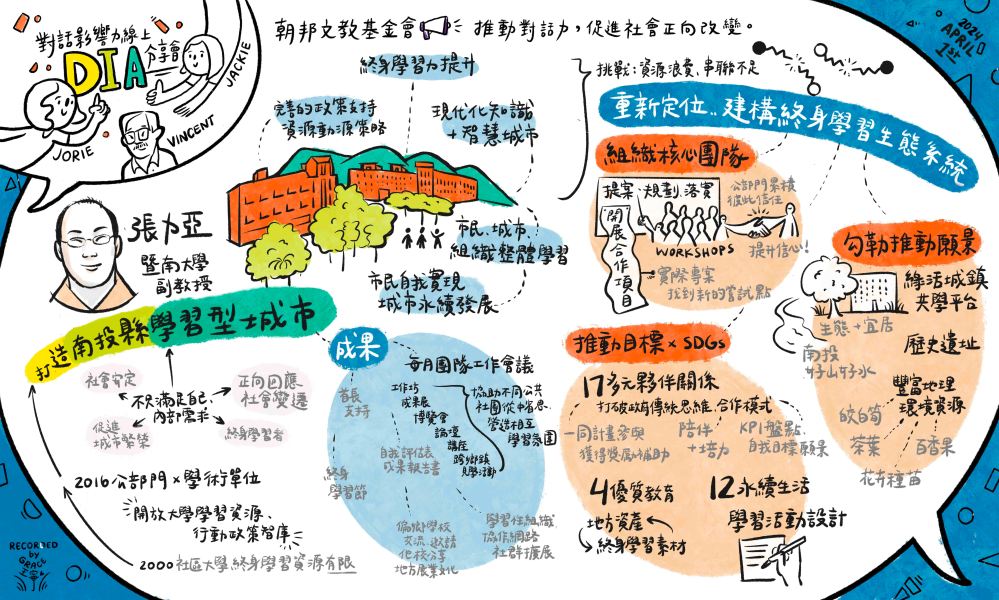 對話影響力線上
分享會
DIA
JACKIE
JORIE
VINCENT
朝邦文教基金會 推動對話力,促進社會正向改變。
2024
APRIL
1st
張力亞
暨南大學
副教授
打造南投縣學習型城市
社會安定
正向回應
社會變遷
不只滿足自己
內部需求
促進
城市繁榮
終身學習者
2016公部門×學術單位
開放大學學習資源、
行動政策智庫
2000社區大學,終身學習資源有限
終身學習力提升
完善的政策支持
資源動源策略
現代化知識
+智慧城市
市民、城市、
組織整體學習
市民自我實現
城市永續發展
成果
每月團隊工作會議
首長
支持
工作坊
成果展
博覽會
論壇
講座
跨鄉鎮
見學活動
協助不同公共
社團從中省思
營造相互
學習氛圍
自我評估表
成果報告書
終身
學習節
偏鄉學校
交流、邀請
他校分享
地方展業文化
學習性組織
協作網路
社群擴展
挑戰:資源浪費、串聯不足
重新定位..建構終身學習生態系統
組織核心團隊
提案、規劃、落實
開展合作項目
公部門累積
彼此信任
WORKSHOPS
提升信心!
實際專案
找到新的嘗試點
勾勒推動願景
綠活城鎮
共學平台
生態+宜居
歷史遺址
南投
好山好水
豐富地理
環境資源
皎白筍
茶葉
百香果
花卉種苗
推動目標×SDGs
17多元夥伴關係
打破政府傳統思維、合作模式
一同計畫參與
獲得獎勵補助
陪伴
+培力
KPI盤點
自我目標願景
4優質教育
地方資產
終身學習素材
12永續生活
學習活動設計
RECORDED
by
GRACE